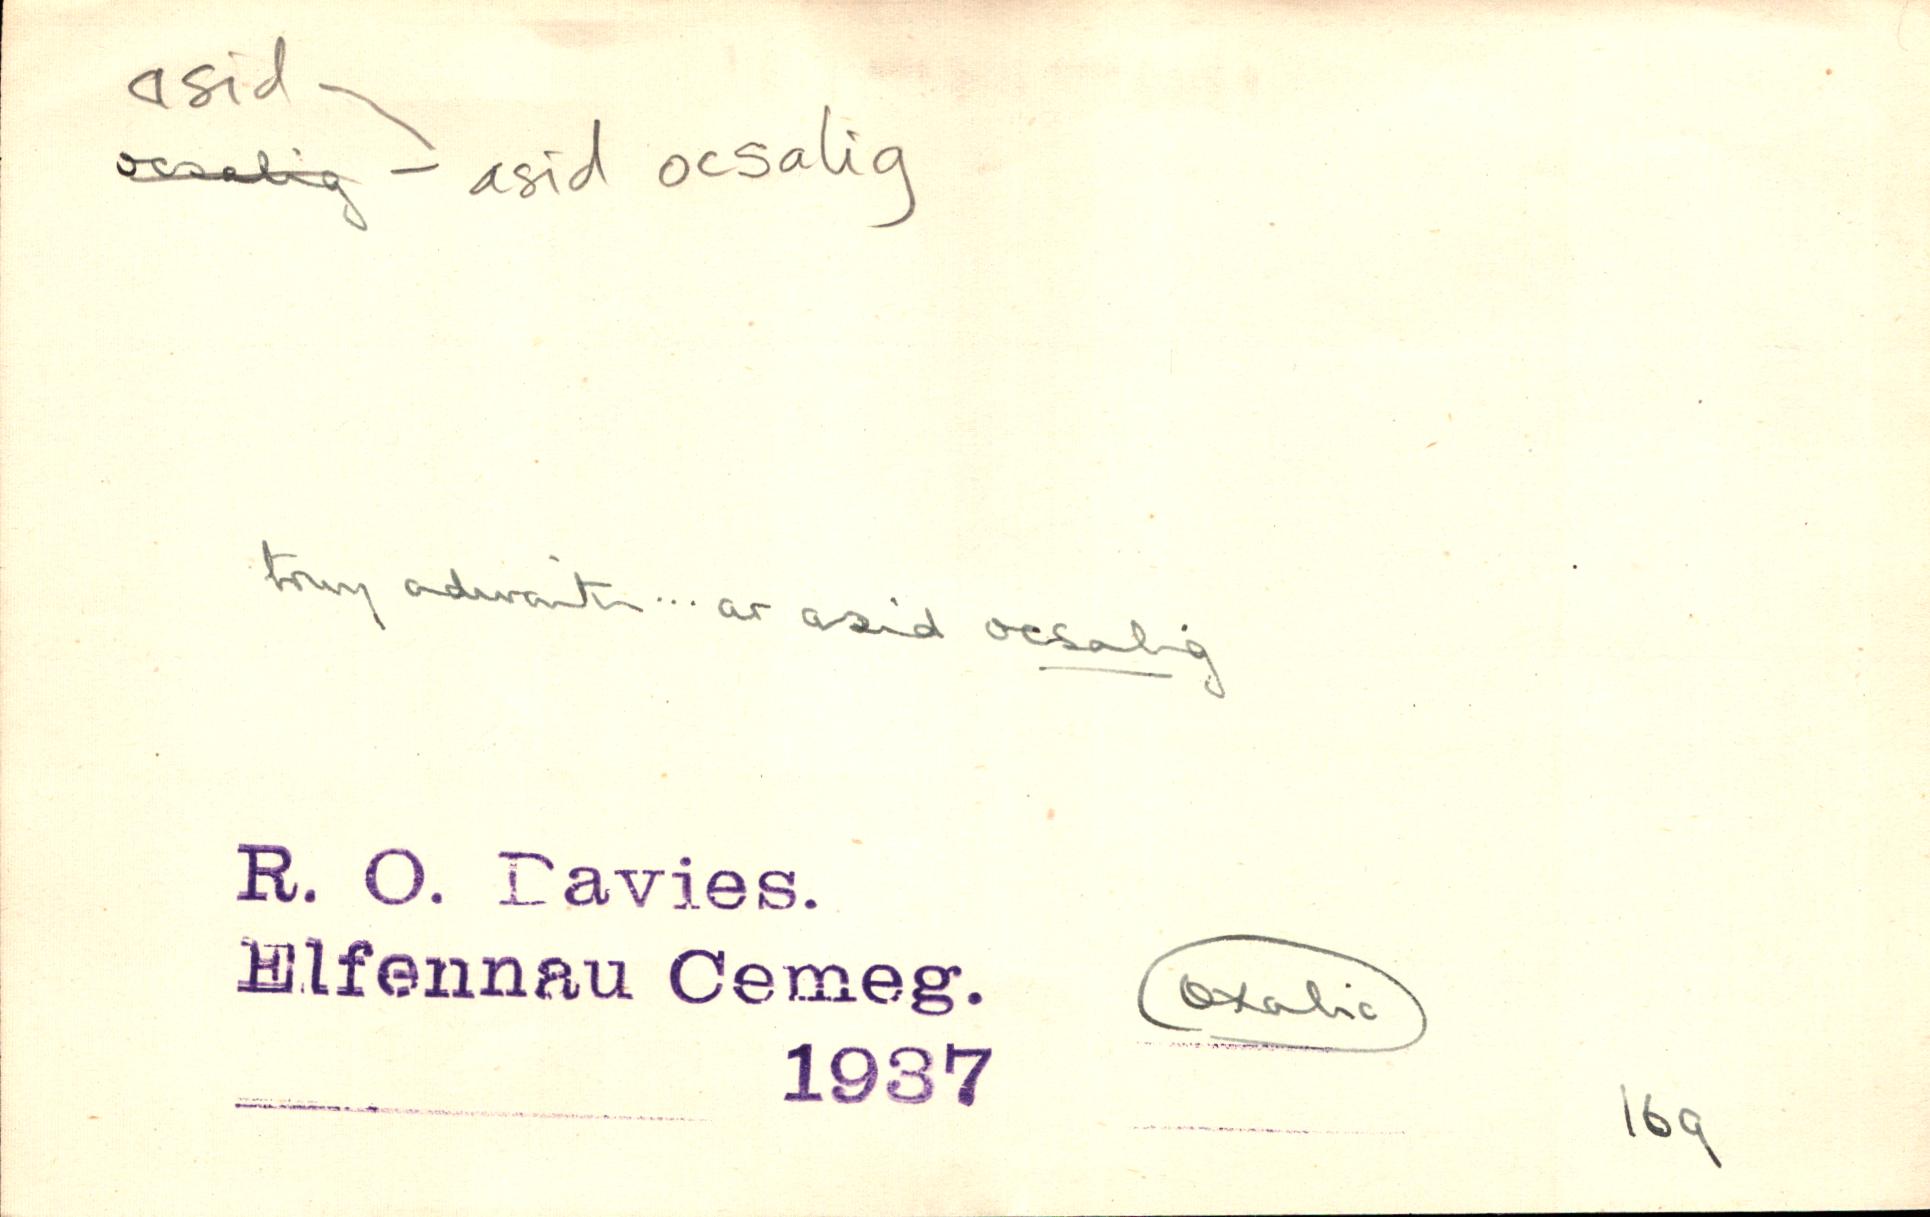 asid
ocsalig — asid ocsalig
trwy adwaith ... ar asid ocsalig
R. O. Davies.
Elfennau Cemeg.
1937
oxalic
169